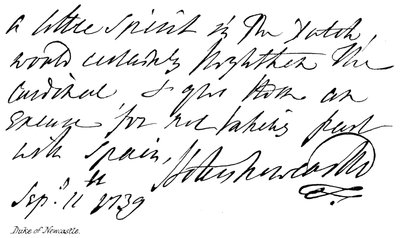 a little spirit in The Dutch,
would certainly frighten The
Cardinal & give Him an
Excuse, for not taking part
with Spain,
Holles Newcastle
Sep.r 11th 1739
Duke of Newcastle.